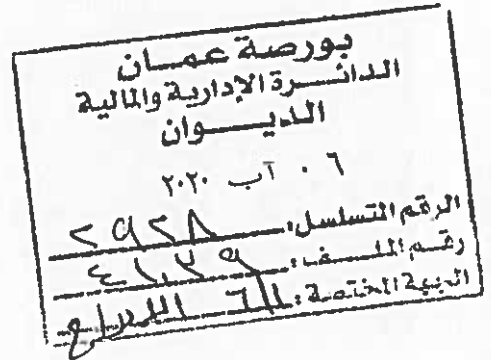 بورصة عمان
الدائرة الإدارية والمالية
الديوان
٠٦ آب ٢٠٢٠
الرقم المتسلسل: ٢٩٢٨
رقم الملف:
الجهة المختصة: